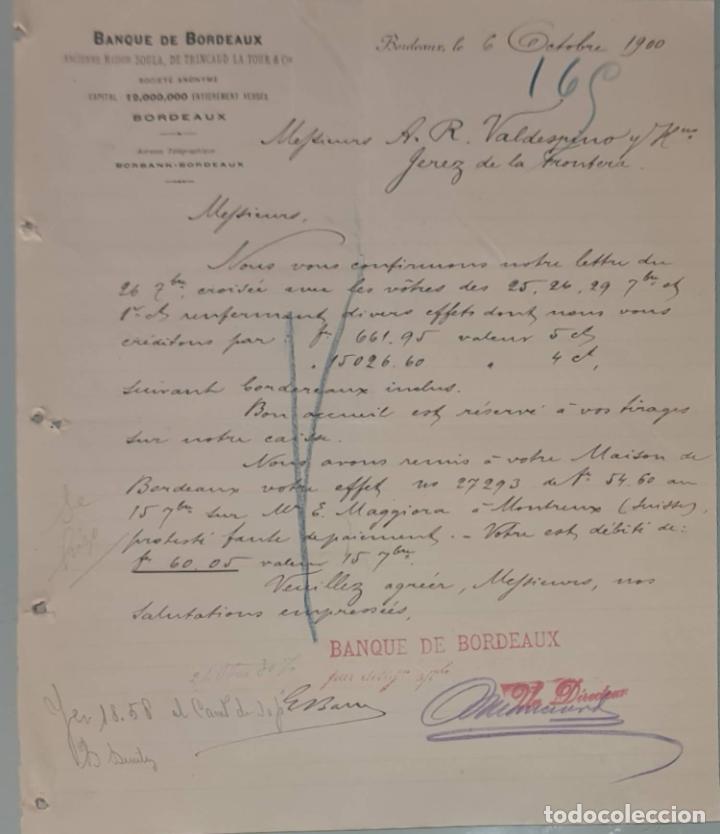 BANQUE DE BORDEAUX
ANCIENNE MAISON SOULA, DE TRINCAUD LA TOUR & Cie
SOCIÉTÉ ANONYME
CAPITAL : 12,000,000 ENTIÈREMENT VERSÉS
BORDEAUX
Adresse Télégraphique
BORBANK-BORDEAUX
Bordeaux, le 6 Octobre 1900
165
Messieurs A. R. Valdespino y Hno
Jerez de la Frontera
Messieurs,
Nous vous confirmons notre lettre du
26 7bre, croisée avec les vôtres des 25, 26, 29 7bre et
1er ct renfermant divers effets dont nous vous
créditons par : fr 661.95 valeur 5 ct
" 15026.60 " 4 ct,
suivant bordereaux inclus.
Bon accueil est réservé à vos tirages
sur notre caisse.
Nous avons remis à votre Maison de
Bordeaux votre effet no 27293 de fr 54.60 au
15 7bre sur Mr E. Maggiora à Montreux (Suisse),
protesté faute de paiement. - Votre est débité de :
fr 60.05 valeur 15 7bre.
Veuillez agréer, Messieurs, nos
salutations empressées,
BANQUE DE BORDEAUX
Directeur
18.58